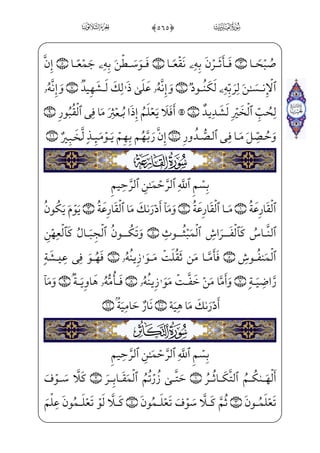 ﴿٥٦٥﴾ الجزء الثلاثون
صُبْحًا ۝٣ فَأَثَرْنَ بِهِۦ نَقْعًا ۝٤ فَوَسَطْنَ بِهِۦ جَمْعًا ۝٥ إِنَّ
ٱلْإِنسَٰنَ لِرَبِّهِۦ لَكَنُودٌ ۝٦ وَإِنَّهُۥ عَلَىٰ ذَٰلِكَ لَشَهِيدٌ ۝٧ وَإِنَّهُۥ
لِحُبِّ ٱلْخَيْرِ لَشَدِيدٌ ۝٨ ۞ أَفَلَا يَعْلَمُ إِذَا بُعْثِرَ مَا فِى ٱلْقُبُورِ ۝٩
وَحُصِّلَ مَا فِى ٱلصُّدُورِ ۝١٠ إِنَّ رَبَّهُم بِهِمْ يَوْمَئِذٍ لَّخَبِيرٌۢ ۝١١
سُورَةُ القَارِعَةِ
بِسْمِ ٱللَّهِ ٱلرَّحْمَٰنِ ٱلرَّحِيمِ
ٱلْقَارِعَةُ ۝١ مَا ٱلْقَارِعَةُ ۝٢ وَمَآ أَدْرَىٰكَ مَا ٱلْقَارِعَةُ ۝٣ يَوْمَ يَكُونُ
ٱلنَّاسُ كَٱلْفَرَاشِ ٱلْمَبْثُوثِ ۝٤ وَتَكُونُ ٱلْجِبَالُ كَٱلْعِهْنِ
ٱلْمَنفُوشِ ۝٥ فَأَمَّا مَن ثَقُلَتْ مَوَٰزِينُهُۥ ۝٦ فَهُوَ فِى عِيشَةٍ
رَّاضِيَةٍ ۝٧ وَأَمَّا مَنْ خَفَّتْ مَوَٰزِينُهُۥ ۝٨ فَأُمُّهُۥ هَاوِيَةٌ ۝٩ وَمَآ
أَدْرَىٰكَ مَا هِيَهْ ۝١٠ نَارٌ حَامِيَةٌۢ ۝١١
سُورَةُ التَّكَاثُرِ
بِسْمِ ٱللَّهِ ٱلرَّحْمَٰنِ ٱلرَّحِيمِ
أَلْهَىٰكُمُ ٱلتَّكَاثُرُ ۝١ حَتَّىٰ زُرْتُمُ ٱلْمَقَابِرَ ۝٢ كَلَّا سَوْفَ
تَعْلَمُونَ ۝٣ ثُمَّ كَلَّا سَوْفَ تَعْلَمُونَ ۝٤ كَلَّا لَوْ تَعْلَمُونَ عِلْمَ